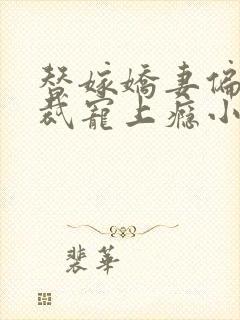 替嫁嬌妻偏
裁寵上癮小
裴華